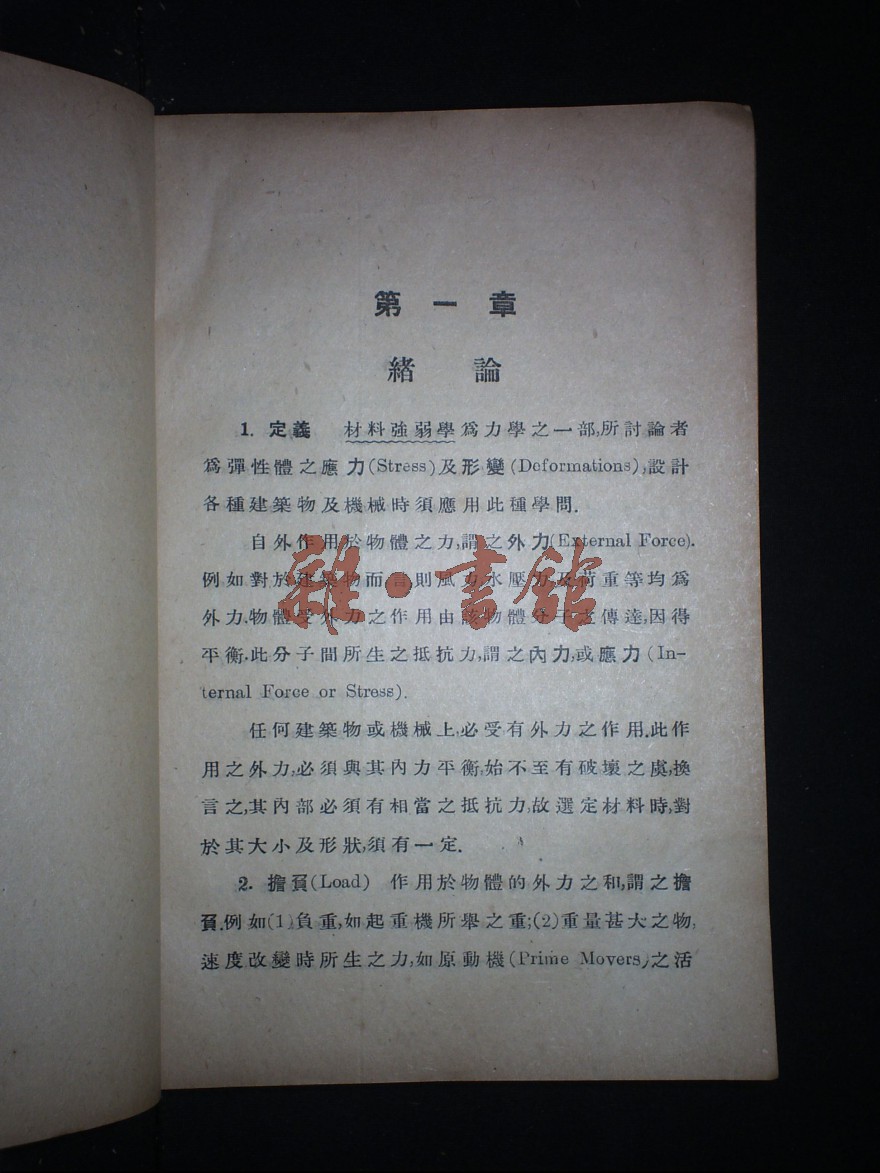 第一章
緒論
1. 定義　材料強弱學爲力學之一部,所討論者
爲彈性體之應力(Stress)及形變(Deformations),設計
各種建築物及機械時須應用此種學問.
自外作用於物體之力,謂之外力(External Force).
例如對於建築物而言,則風力水壓力及荷重等均爲
外力.物體受外力之作用由該物體分子之傳達,因得
平衡.此分子間所生之抵抗力,謂之內力,或應力(In-
ternal Force or Stress).
任何建築物或機械上,必受有外力之作用.此作
用之外力,必須與其內力平衡,始不至有破壞之虞,換
言之,其內部必須有相當之抵抗力,故選定材料時,對
於其大小及形狀,須有一定.
2. 擔負(Load)　作用於物體的外力之和,謂之擔
負.例如(1)負重,如起重機所舉之重;(2)重量甚大之物,
速度改變時所生之力,如原動機(Prime Movers)之活
雜·書館